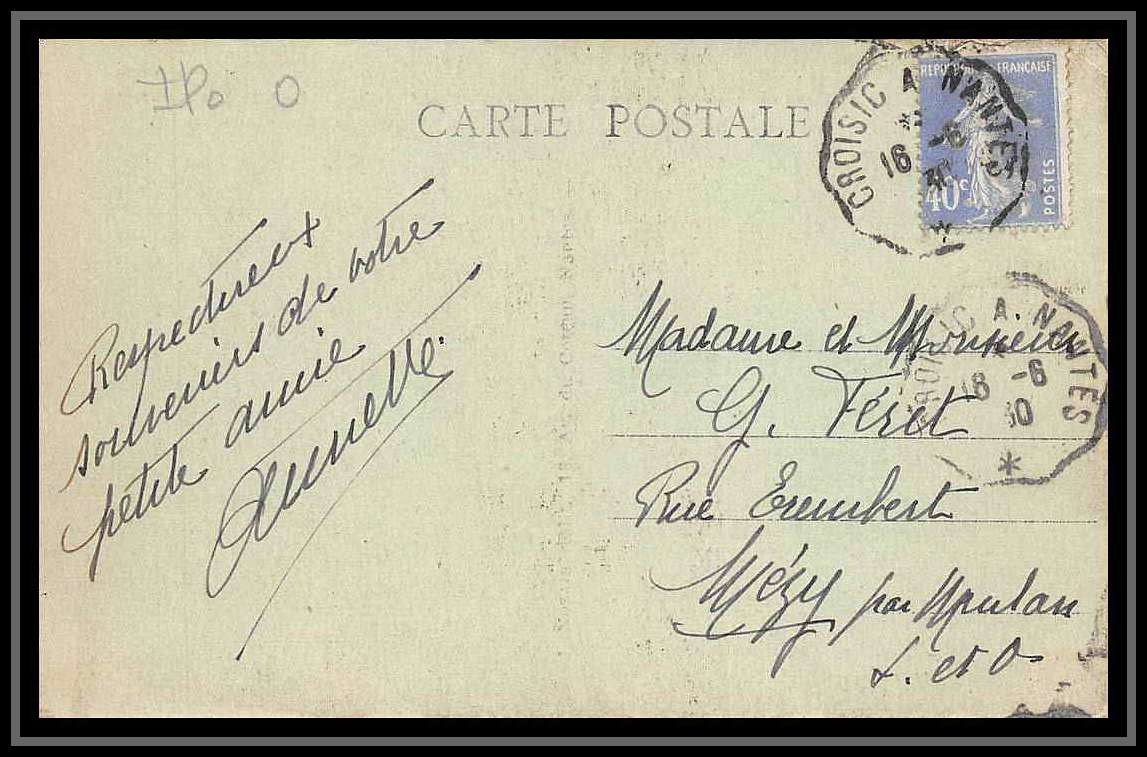 CARTE POSTALE
CROISIC A NANTES
16 -6
30
REPUBLIQUE FRANÇAISE
40c
POSTES
Respectueux
souvenirs de votre
petite amie
CROISIC A NANTES
16 -6
30
*
Madame et Monsieur
G. Féret
Rue Erembert
Mézy par Meulan
S. et O